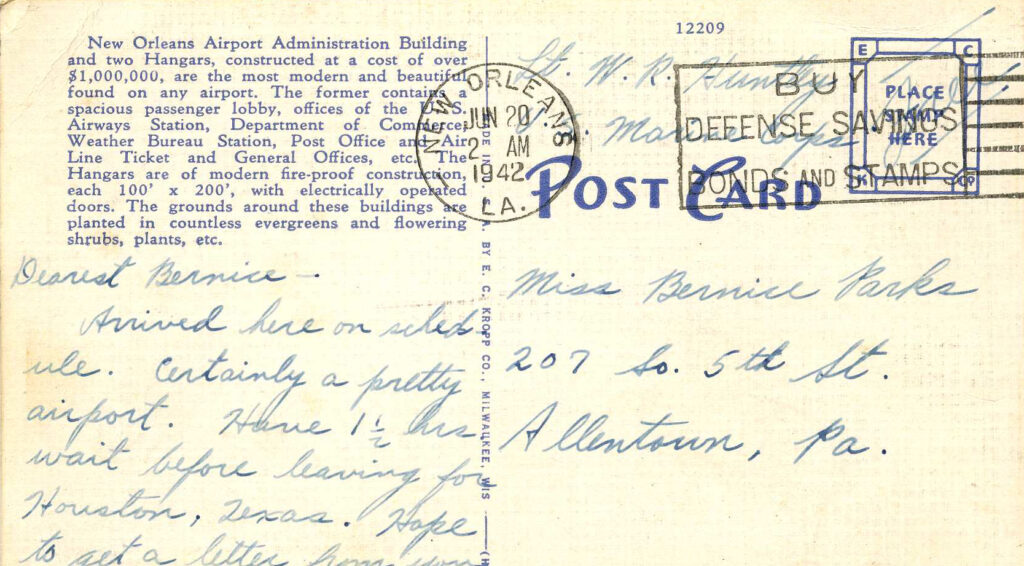 New Orleans Airport Administration Building
and two Hangars, constructed at a cost of over
$1,000,000, are the most modern and beautiful
found on any airport. The former contains a
spacious passenger lobby, offices of the U. S.
Airways Station, Department of Commerce,
Weather Bureau Station, Post Office and Air
Line Ticket and General Offices, etc. The
Hangars are of modern fire-proof construction,
each 100' x 200', with electrically operated
doors. The grounds around these buildings are
planted in countless evergreens and flowering
shrubs, plants, etc.
Dearest Bernice –
Arrived here on sched-
ule. Certainly a pretty
airport. Have 1 1/2 hrs.
wait before leaving for
Houston, Texas. Hope
to get a letter from you
MADE IN U. S. A. BY E. C. KROPP CO., MILWAUKEE, WIS
12209
Lt. W. R. Huntley
U.S. Marine Corps
NEW ORLEANS
JUN 20
2 AM
1942
LA.
BUY
DEFENSE SAVINGS
BONDS AND STAMPS
E C
PLACE
STAMP
HERE
K CO
POST CARD
Miss Bernice Parks
207 So. 5th St.
Allentown, Pa.